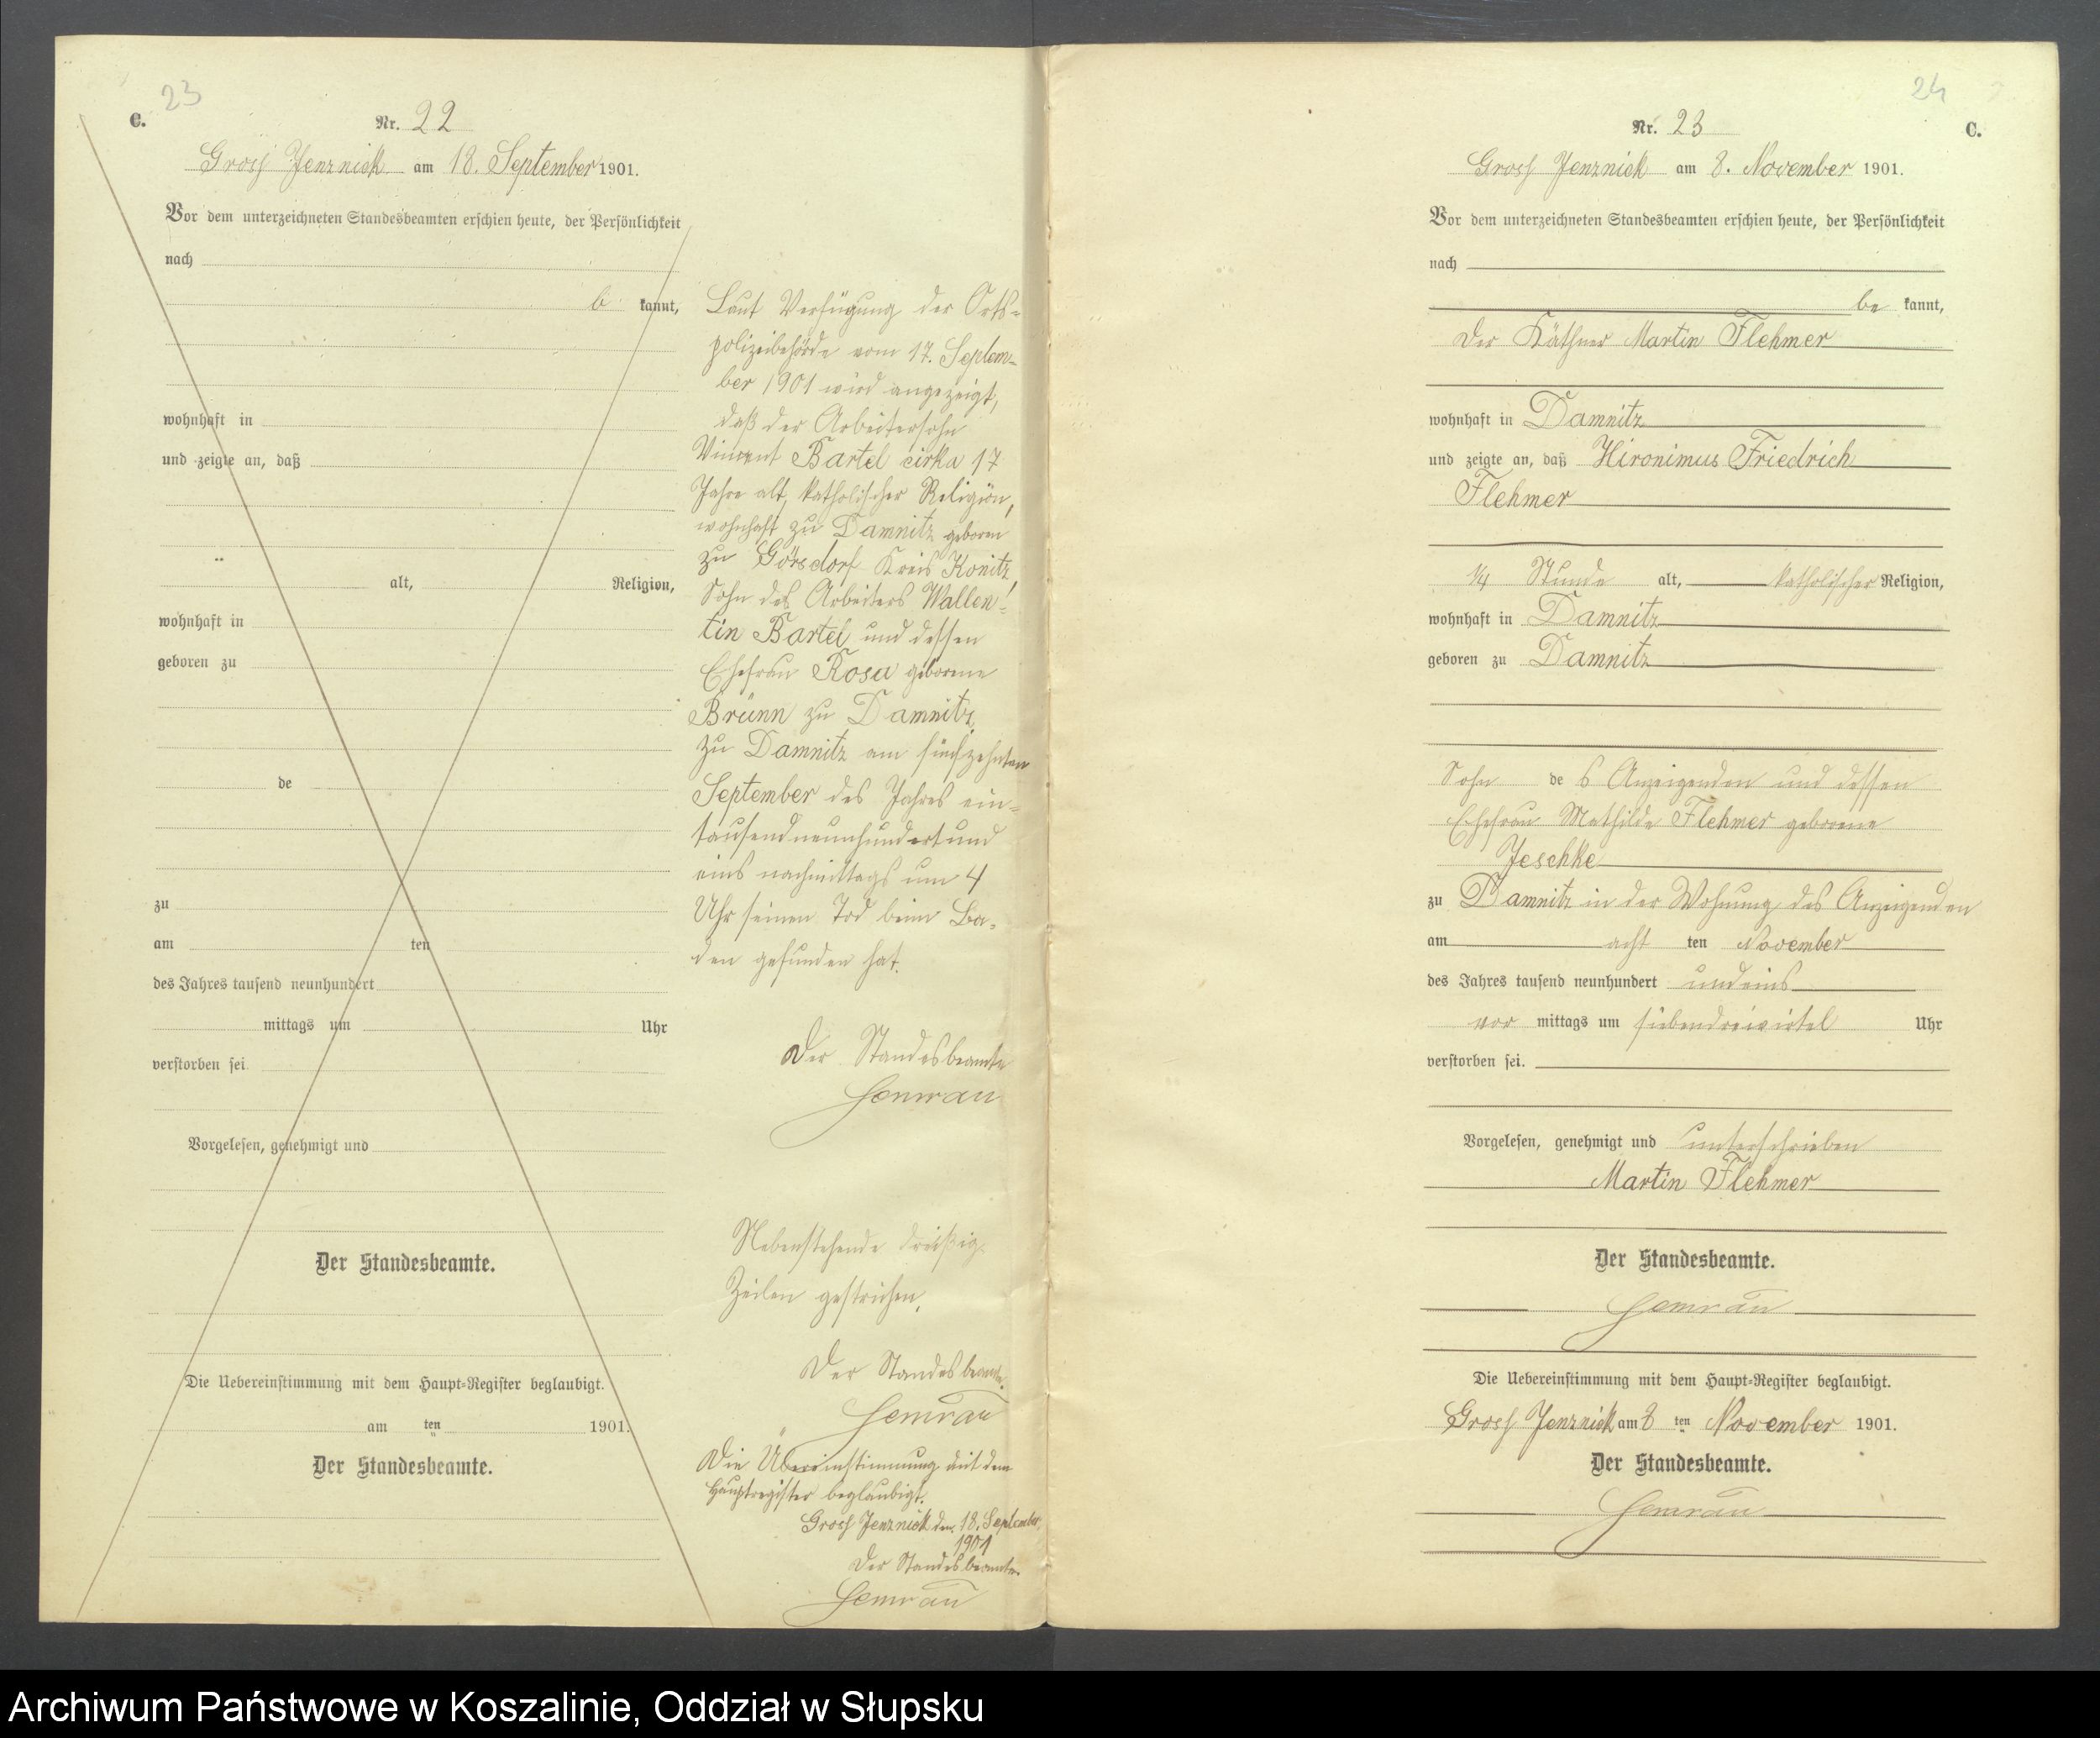 23
C.
Nr. 22
Gross Jenznick am 18. September 1901.
Vor dem unterzeichneten Standesbeamten erschien heute, der Persönlichkeit
nach
b kannt,
wohnhaft in
und zeigte an, daß
alt, Religion,
wohnhaft in
geboren zu
de
zu
am ten
des Jahres tausend neunhundert
mittags um Uhr
verstorben sei
Vorgelesen, genehmigt und
Der Standesbeamte.
Die Uebereinstimmung mit dem Haupt-Register beglaubigt.
am ten 1901.
Der Standesbeamte.
Laut Verfügung der Orts-
polizeibehörde vom 17. Septem-
ber 1901 wird angezeigt,
daß der Arbeitersohn
Vincent Bartel cirka 17
Jahre alt, katholischer Religion,
wohnhaft zu Damnitz geboren
zu Görsdorf Kreis Konitz
Sohn des Arbeiters Wallen-
tin Bartel und dessen
Ehefrau Rosa geborene
Brünn zu Damnitz,
zu Damnitz am fünfzehnten
September des Jahres ein-
tausendneunhundertund
eins nachmittags um 4
Uhr seinen Tod beim Ba-
den gefunden hat.
Der Standesbeamte
Semrau
Nebenstehende dreißig
Zeilen gestrichen.
Der Standesbeamte.
Semrau
Die Übereinstimmung mit dem
Hauptregister beglaubigt.
Gross Jenznick den 18. September
1901
Der Standesbeamte.
Semrau
24
Nr. 23
C.
Gross Jenznick am 8. November 1901.
Vor dem unterzeichneten Standesbeamten erschien heute, der Persönlichkeit
nach
be kannt,
der Käthner Martin Flehmer
wohnhaft in Damnitz
und zeigte an, daß Hironimus Friedrich
Flehmer
1/4 Stunde alt, katholischer Religion,
wohnhaft in Damnitz
geboren zu Damnitz
Sohn de s Anzeigenden und dessen
Ehefrau Mathilde Flehmer geborene
Jeschke
zu Damnitz in der Wohnung des Anzeigenden
am acht ten November
des Jahres tausend neunhundert undeins
vor mittags um siebendreivirtel Uhr
verstorben sei.
Vorgelesen, genehmigt und unterschrieben
Martin Flehmer
Der Standesbeamte.
Semrau
Die Uebereinstimmung mit dem Haupt-Register beglaubigt.
Gross Jenznick am 8 ten November 1901.
Der Standesbeamte.
Semrau
Archiwum Państwowe w Koszalinie, Oddział w Słupsku